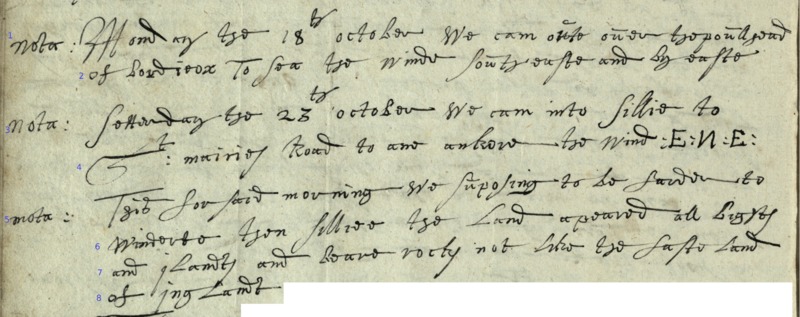 nota: Mond ay the 18th october We cam oute over the poulhead
of bordieox To sea the winde south easte and by easte
Nota: Setterday the 23th october We cam into Sillie to
St: mairies Road to ane ankere the Wind :E:N:E:
nota: This forsaid morning We suposing to be farder to
Winderte then silliee the Land apeared all bights
and ilands and beare rocks not like the faste land
of ingLandt